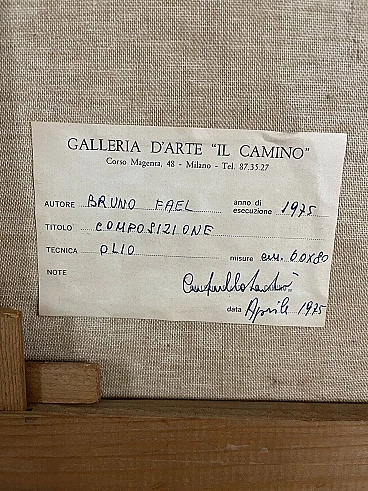 GALLERIA D'ARTE "IL CAMINO"
Corso Magenta, 48 - Milano - Tel. 87.35.27
AUTORE BRUNO FAEL anno di esecuzione 1975
TITOLO COMPOSIZIONE
TECNICA OLIO misure cm. 60X80
NOTE
data Aprile 1975